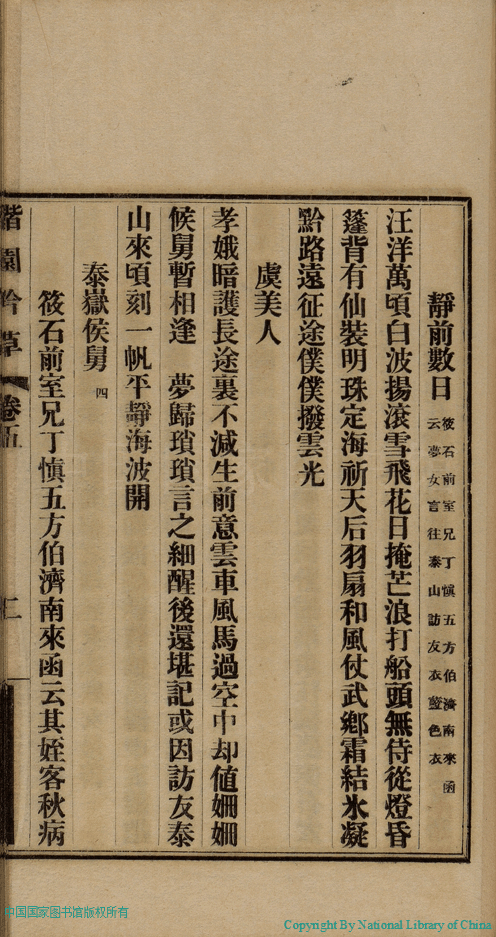 靜前數日 筱石前室兄丁慎五方伯濟南來函
云夢女言往泰山訪友衣藍色衣
汪洋萬頃白波揚滾雪飛花日掩芒浪打船頭無侍從燈昏
篷背有仙裝明珠定海祈天后羽扇和風仗武鄉霜結氷凝
黔路遠征途僕僕撥雲光
虞美人
孝娥暗護長途裏不減生前意雲車風馬過空中却値姍姍
候舅暫相逢 夢歸瑣瑣言之細醒後還堪記或因訪友泰
山來頃刻一帆平靜海波開
泰嶽侯舅 四
筱石前室兄丁慎五方伯濟南來函云其姪客秋病
園吟草 卷五
二
中国国家图书馆版权所有
Copyright By National Library of China